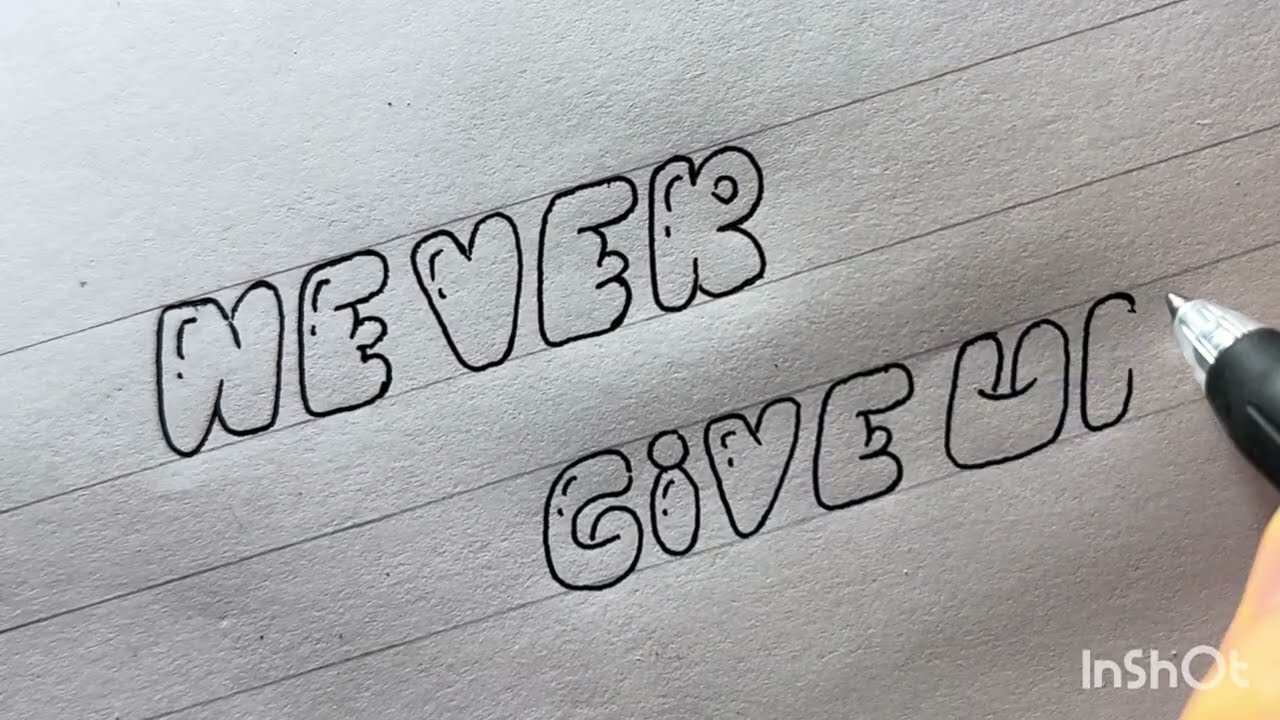 NEVER
GiVE U
InShOt